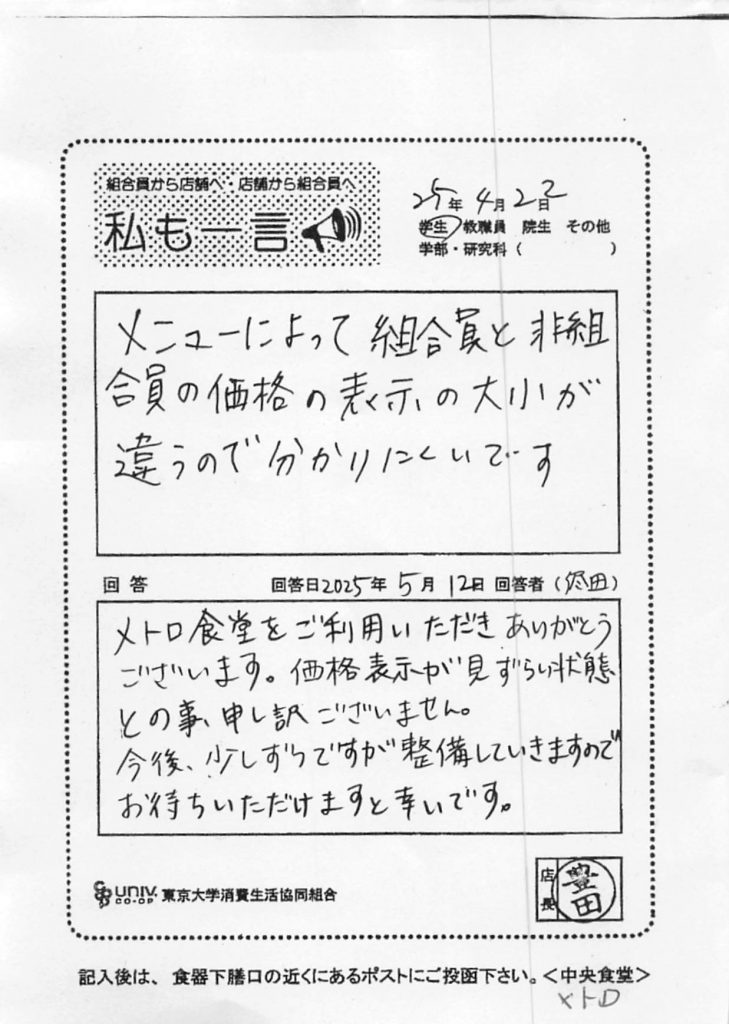 組合員から店舗へ・店舗から組合員へ
私も一言
25年4月22日
学生 教職員 院生 その他
学部・研究科（ ）
メニューによって組合員と非組
合員の価格の表示の大小が
違うので分かりにくいです
回答 回答日2025年5月12日 回答者（ 田）
メトロ食堂をご利用いただきありがとう
ございます。価格表示が見ずらい状態
との事、申し訳ございません。
今後、少しずつですが整備していきますので
お待ちいただけますと幸いです。
UNIV. CO-OP 東京大学消費生活協同組合
店長 豊田
記入後は、食器下膳口の近くにあるポストにご投函下さい。＜中央食堂＞
メトロ